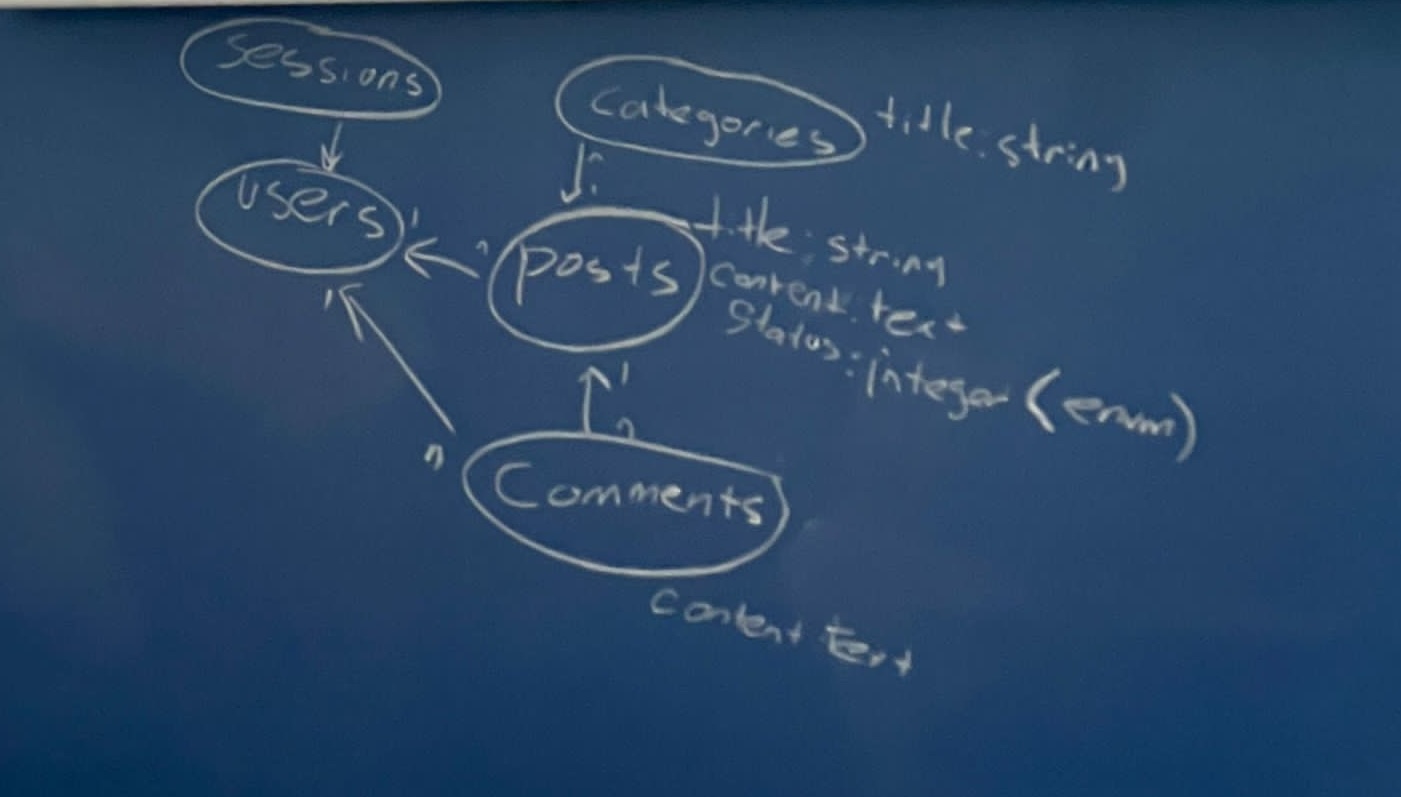 sessions
categories
title: string
users
1
n
posts
title: string
content: text
status: integer (enum)
1
1
n
n
Comments
content text